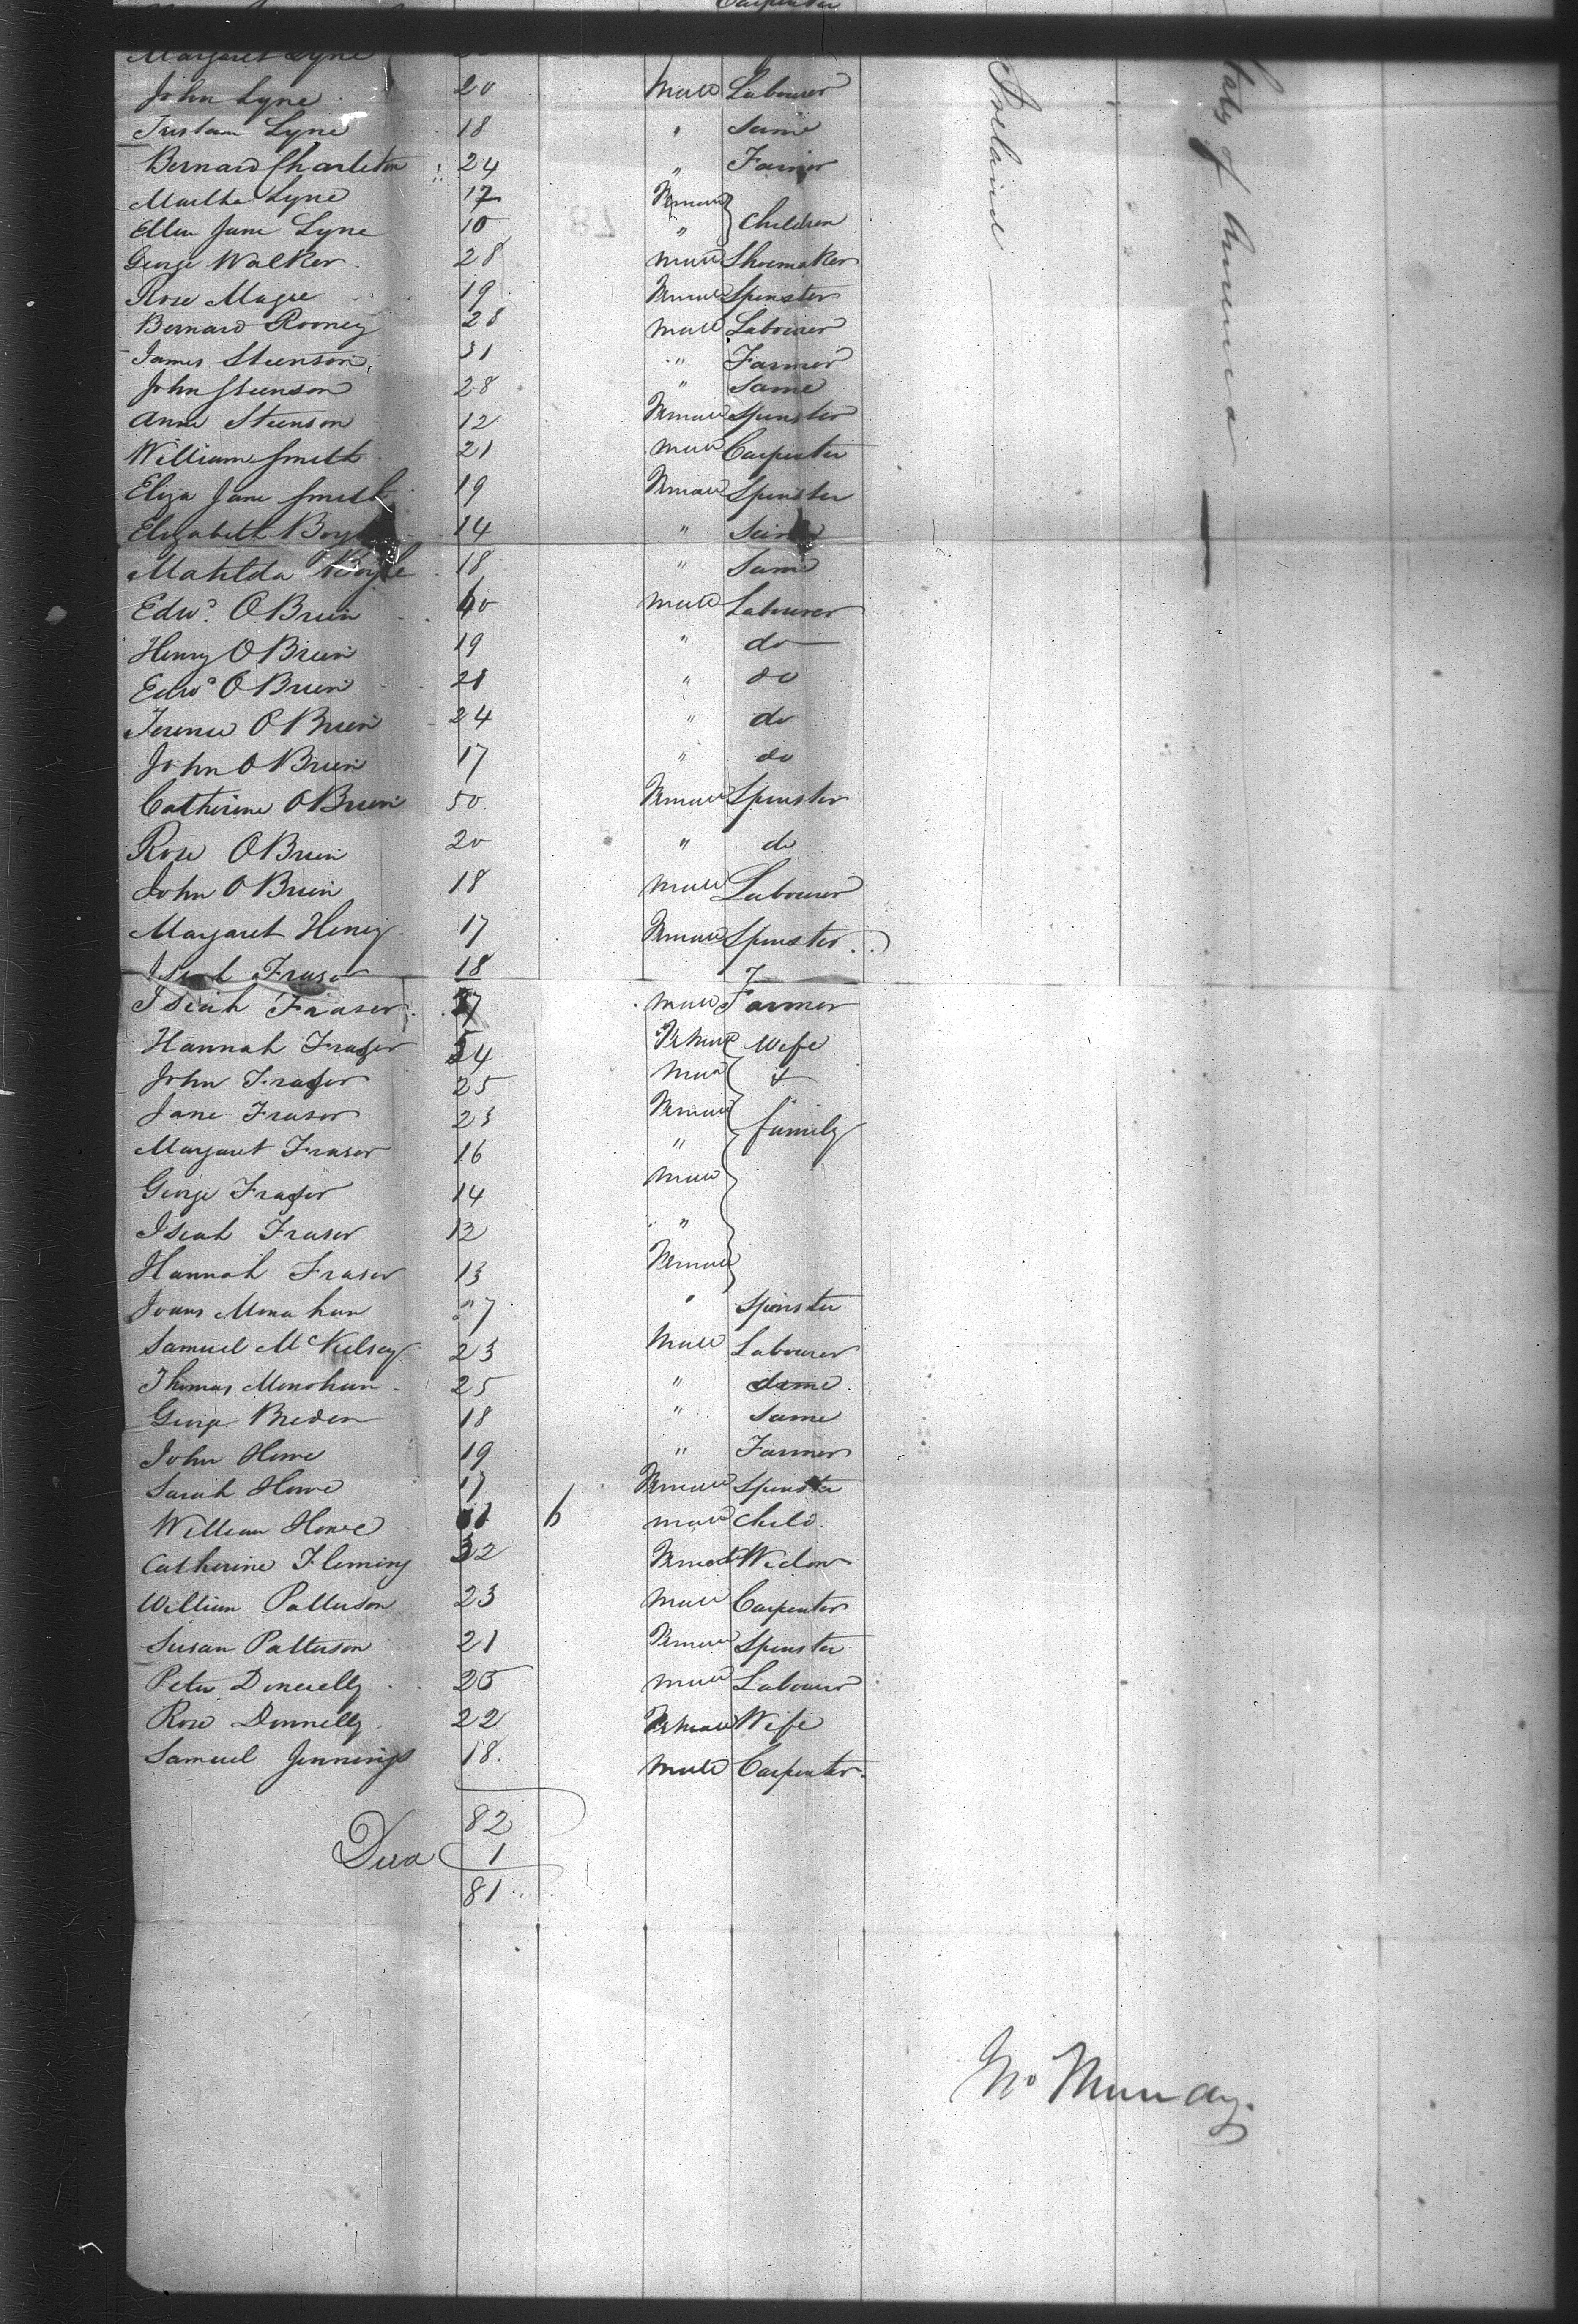 Carpenter
Margaret Lyne
John Lyne 20 Male Labourer
Tristam Lyne 18 " Same
Bernard Charleton 24 " Farmer
Martha Lyne 17 Female
Ellen Jane Lyne 10 " Children
George Walker 28 male Shoemaker
Rose Magee 19 Female Spinster
Bernard Rooney 28 male Labourer
James Steenson 31 " Farmer
John Steenson 28 " Same
Anne Steenson 12 Female Spinster
William Smith 21 male Carpenter
Eliza Jane Smith 19 Female Spinster
Elizabeth Boyle 14 "
Matilda Boyle 18 " Same
Edwd. O Brien 40 male Labourer
Henry O Brien 19 " do
Edwd O Brien 21 " do
Terence O Brien 24 " do
John O Brien 17 " do
Catherine O Brien 50 Female Spinster
Rose O Brien 20 " do
John O Brien 18 male Labourer
Margaret Henry 17 Female Spinster
Isiah Fraser 18
Isiah Fraser 57 male Farmer
Hannah Fraser 54 Female Wife
John Fraser 25 male &
Jane Fraser 23 Female family
Margaret Fraser 16 "
George Fraser 14 male
Isiah Fraser 12 "
Hannah Fraser 13 Female
Monahan 27 " Spinster
Samuel McKelsey 23 Male Labourer
Thomas Monohan 25 " Same
George Breden 18 " Same
John Howe 19 " Farmer
Sarah Howe 17 Female Spinster
William Howe 11 6 male Child
Catherine Fleming 32 Female Widow
William Patterson 23 male Carpenter
Susan Patterson 21 Female Spinster
Peter Donnelly 25 male Labourer
Rose Donnelly 22 Female Wife
Samuel Jennings 18 male Carpenter
82
1
81
Ireland
of America
Murray